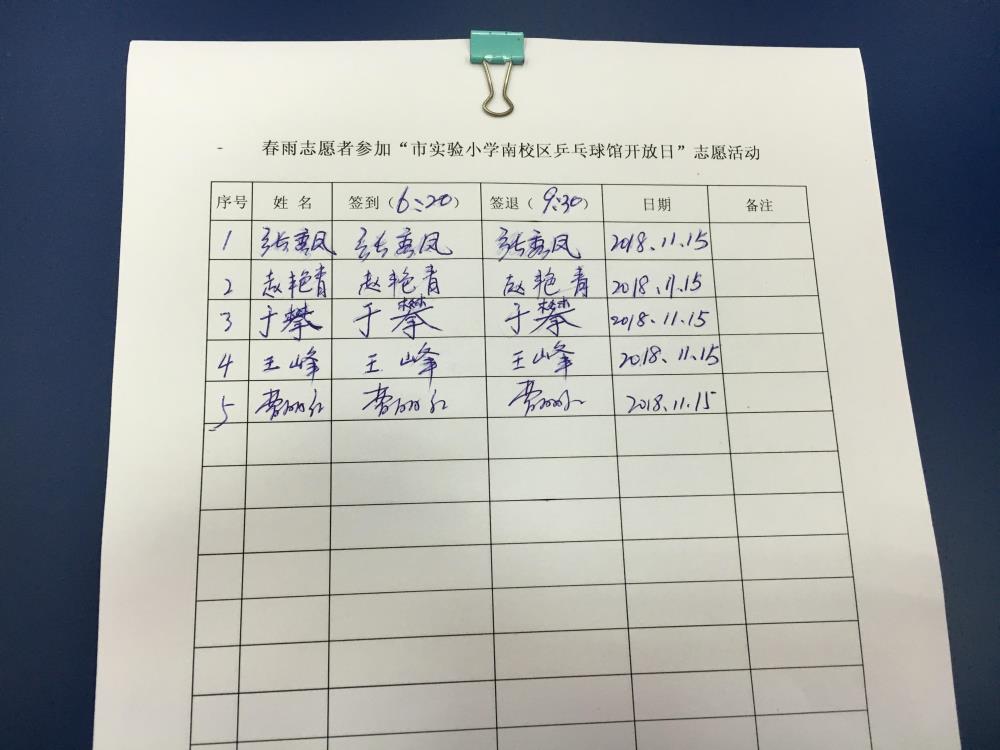 春雨志愿者参加“市实验小学南校区乒乓球馆开放日”志愿活动
序号 姓 名 签到（6:20） 签退（9:30） 日期 备注
1 张秀凤 张秀凤 张秀凤 2018.11.15
2 赵艳青 赵艳青 赵艳青 2018.11.15
3 于攀 于攀 于攀 2018.11.15
4 王峰 王峰 王峰 2018.11.15
5 曹丽红 曹丽红 曹丽红 2018.11.15